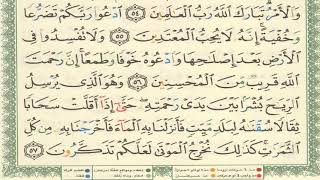 وَالْأَمْرُ تَبَارَكَ اللَّهُ رَبُّ الْعَالَمِينَ ٥٤ ادْعُوا رَبَّكُمْ تَضَرُّعًا
وَخُفْيَةً إِنَّهُ لَا يُحِبُّ الْمُعْتَدِينَ ٥٥ وَلَا تُفْسِدُوا فِي
الْأَرْضِ بَعْدَ إِصْلَاحِهَا وَادْعُوهُ خَوْفًا وَطَمَعًا إِنَّ رَحْمَتَ
اللَّهِ قَرِيبٌ مِنَ الْمُحْسِنِينَ ٥٦ وَهُوَ الَّذِي يُرْسِلُ
الرِّيَاحَ بُشْرًا بَيْنَ يَدَيْ رَحْمَتِهِ حَتَّى إِذَا أَقَلَّتْ سَحَابًا
ثِقَالًا سُقْنَاهُ لِبَلَدٍ مَيِّتٍ فَأَنْزَلْنَا بِهِ الْمَاءَ فَأَخْرَجْنَا بِهِ مِنْ كُلِّ
الثَّمَرَاتِ كَذَلِكَ نُخْرِجُ الْمَوْتَى لَعَلَّكُمْ تَذَكَّرُونَ ٥٧